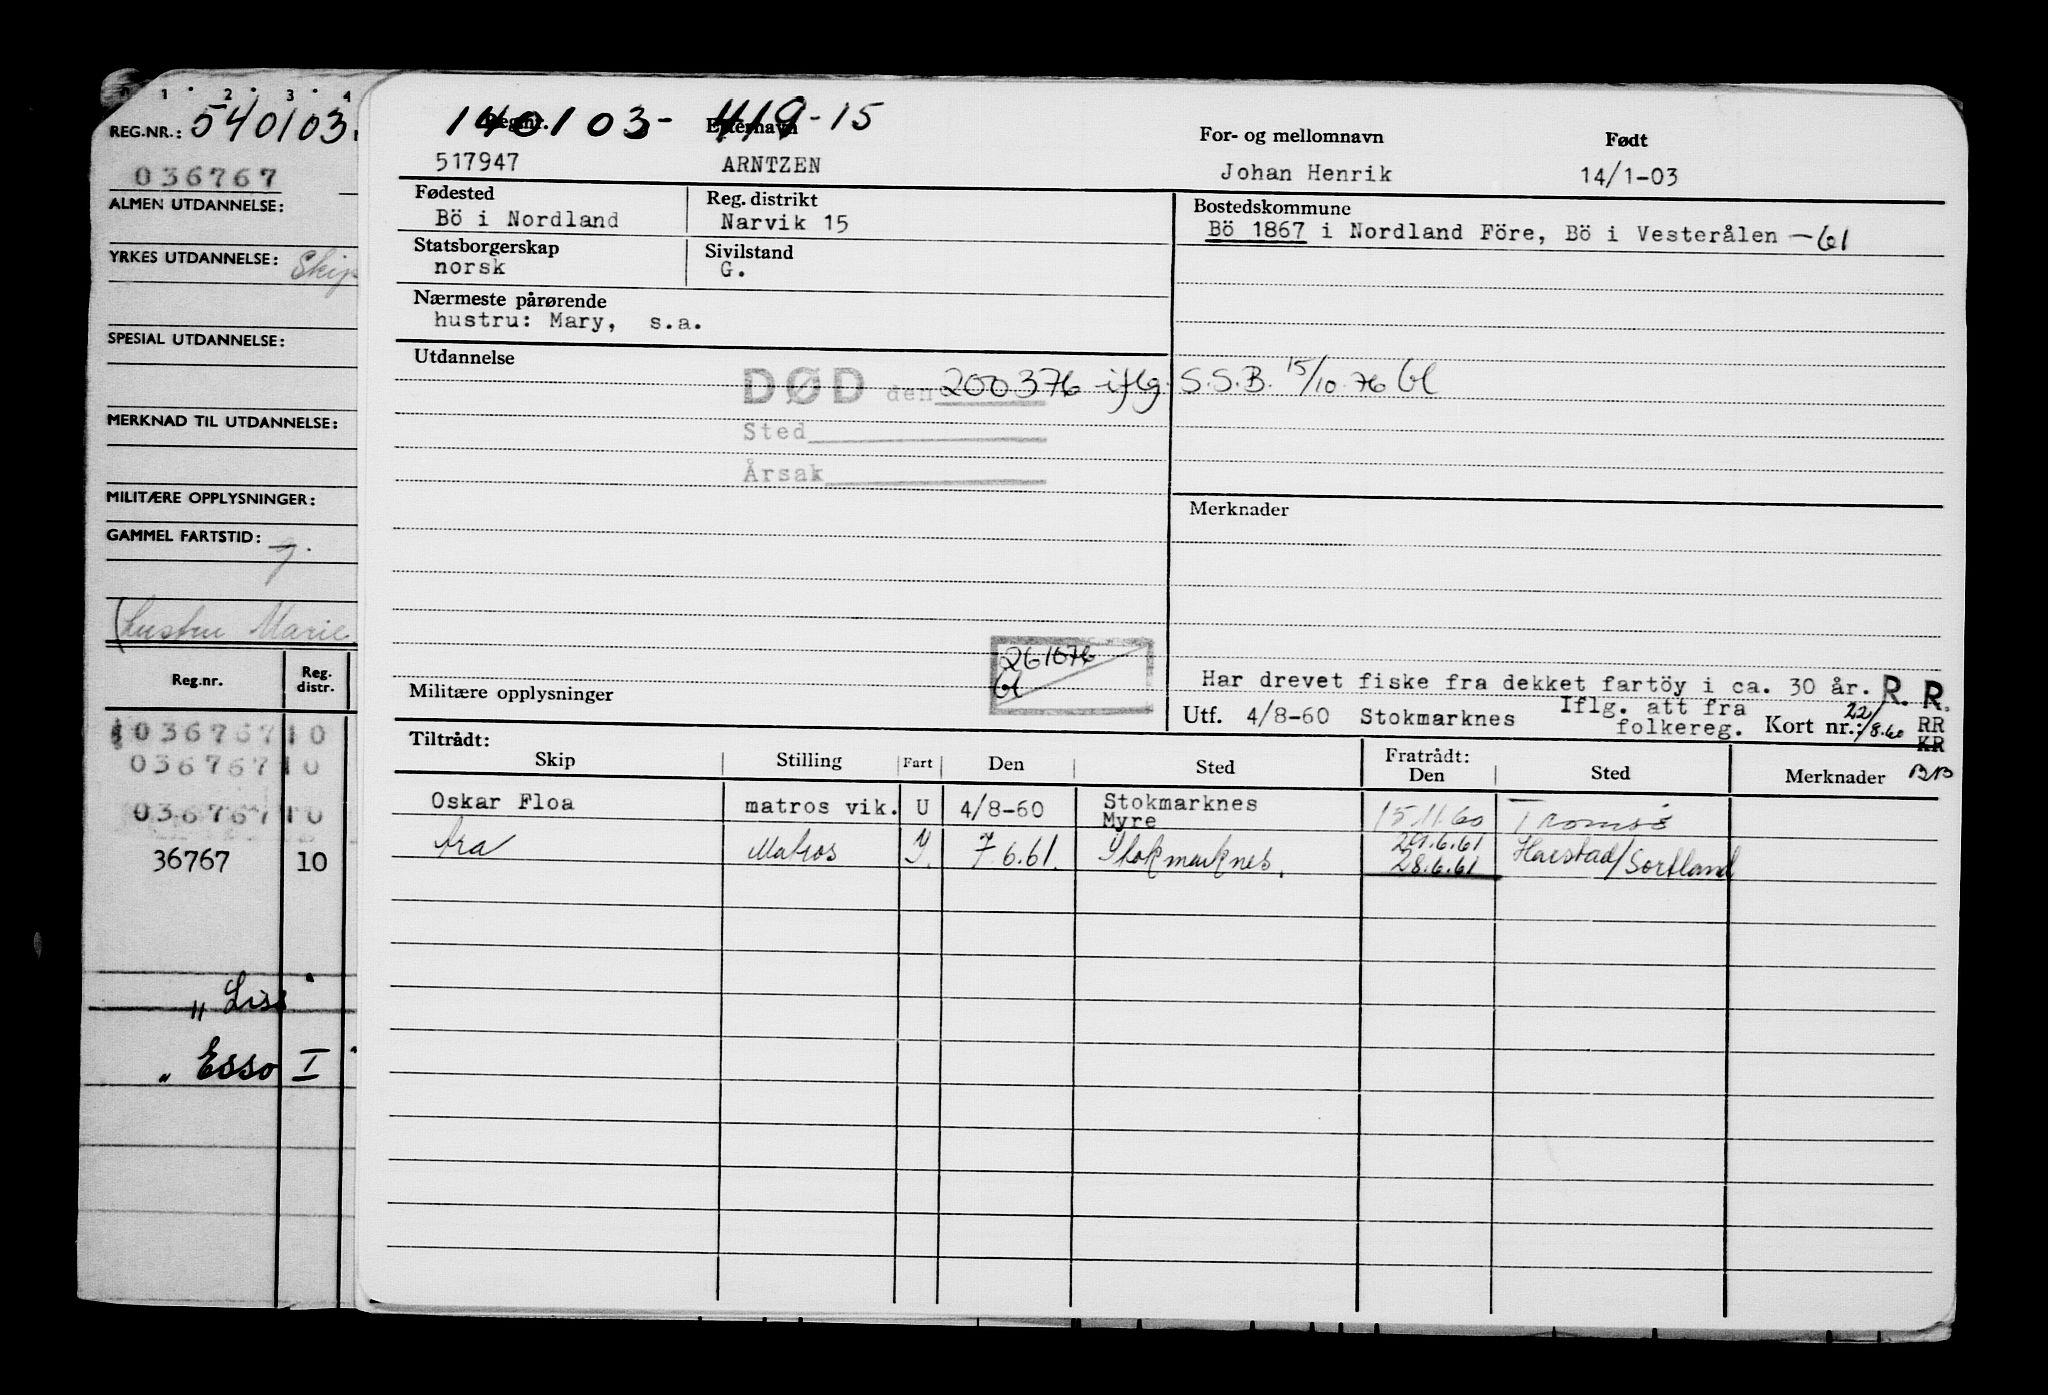 1 2 3 4
REG.NR.: 540103
036767
ALMEN UTDANNELSE:
YRKES UTDANNELSE: Skip
SPESIAL UTDANNELSE:
MERKNAD TIL UTDANNELSE:
MILITÆRE OPPLYSNINGER:
GAMMEL FARTSTID:
(hustru Marie
Reg.nr. Reg. distr.
036767 10
036767 10
036767 10
36767 10
" Lise "
" Esso I "
140103- 419-15
Reg.nr. Efternavn For- og mellomnavn Født
517947 ARNTZEN Johan Henrik 14/1-03
Fødested Reg. distrikt Bostedskommune
Bö i Nordland Narvik 15 Bö 1867 i Nordland Före, Bö i Vesterålen -61
Statsborgerskap Sivilstand
norsk G.
Nærmeste pårørende
hustru: Mary, s.a.
Utdannelse
DØD den 200376 iflg. S.S.B. 15/10.76 bl
Sted
Årsak
Merknader
261076
bl
Militære opplysninger
Har drevet fiske fra dekket fartöy i ca. 30 år. R. R.
Utf. 4/8-60 Stokmarknes Iflg. att fra folkereg. Kort nr.: 22/8.60 RR
KR
BB
Tiltrådt: Fratrådt:
Skip Stilling Fart Den Sted Den Sted Merknader
Oskar Floa matros vik. U 4/8-60 Stokmarknes 15.11.60 Tromsø
Myre 29.6.61
Matros 7.6.61. Stokmarknes. 28.6.61 Harstad/Sortland